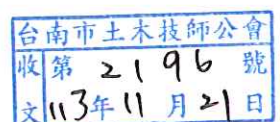 台南市土木技師公會
收文
第2196號
113年11月21日